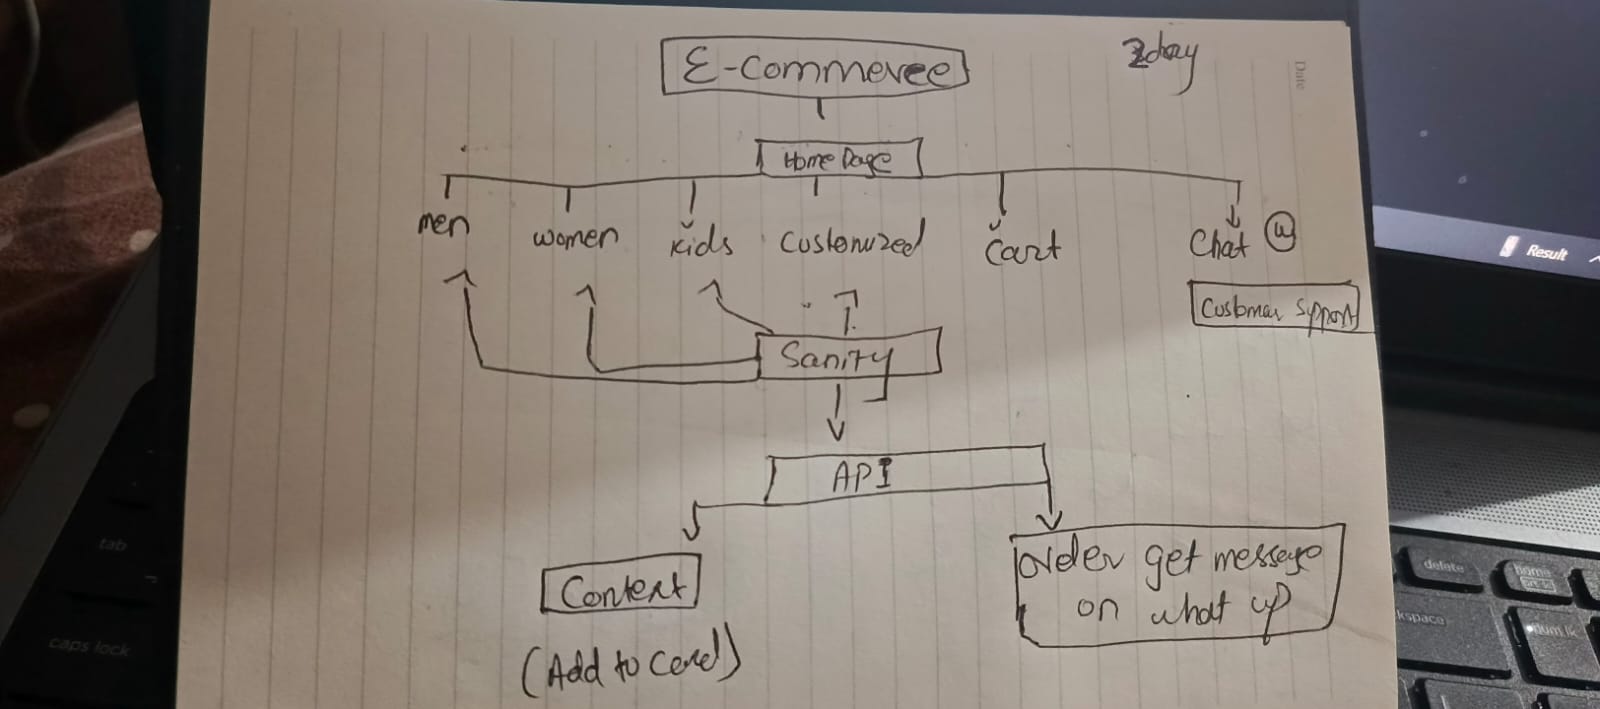 E-commerce
2day
Date
Home Page
men
women
kids
Customized
Cart
Chat
Customer Support
Sanity
API
Context
(Add to Card)
order get message
on what up
Result
tab
caps lock
delete
home
num lk